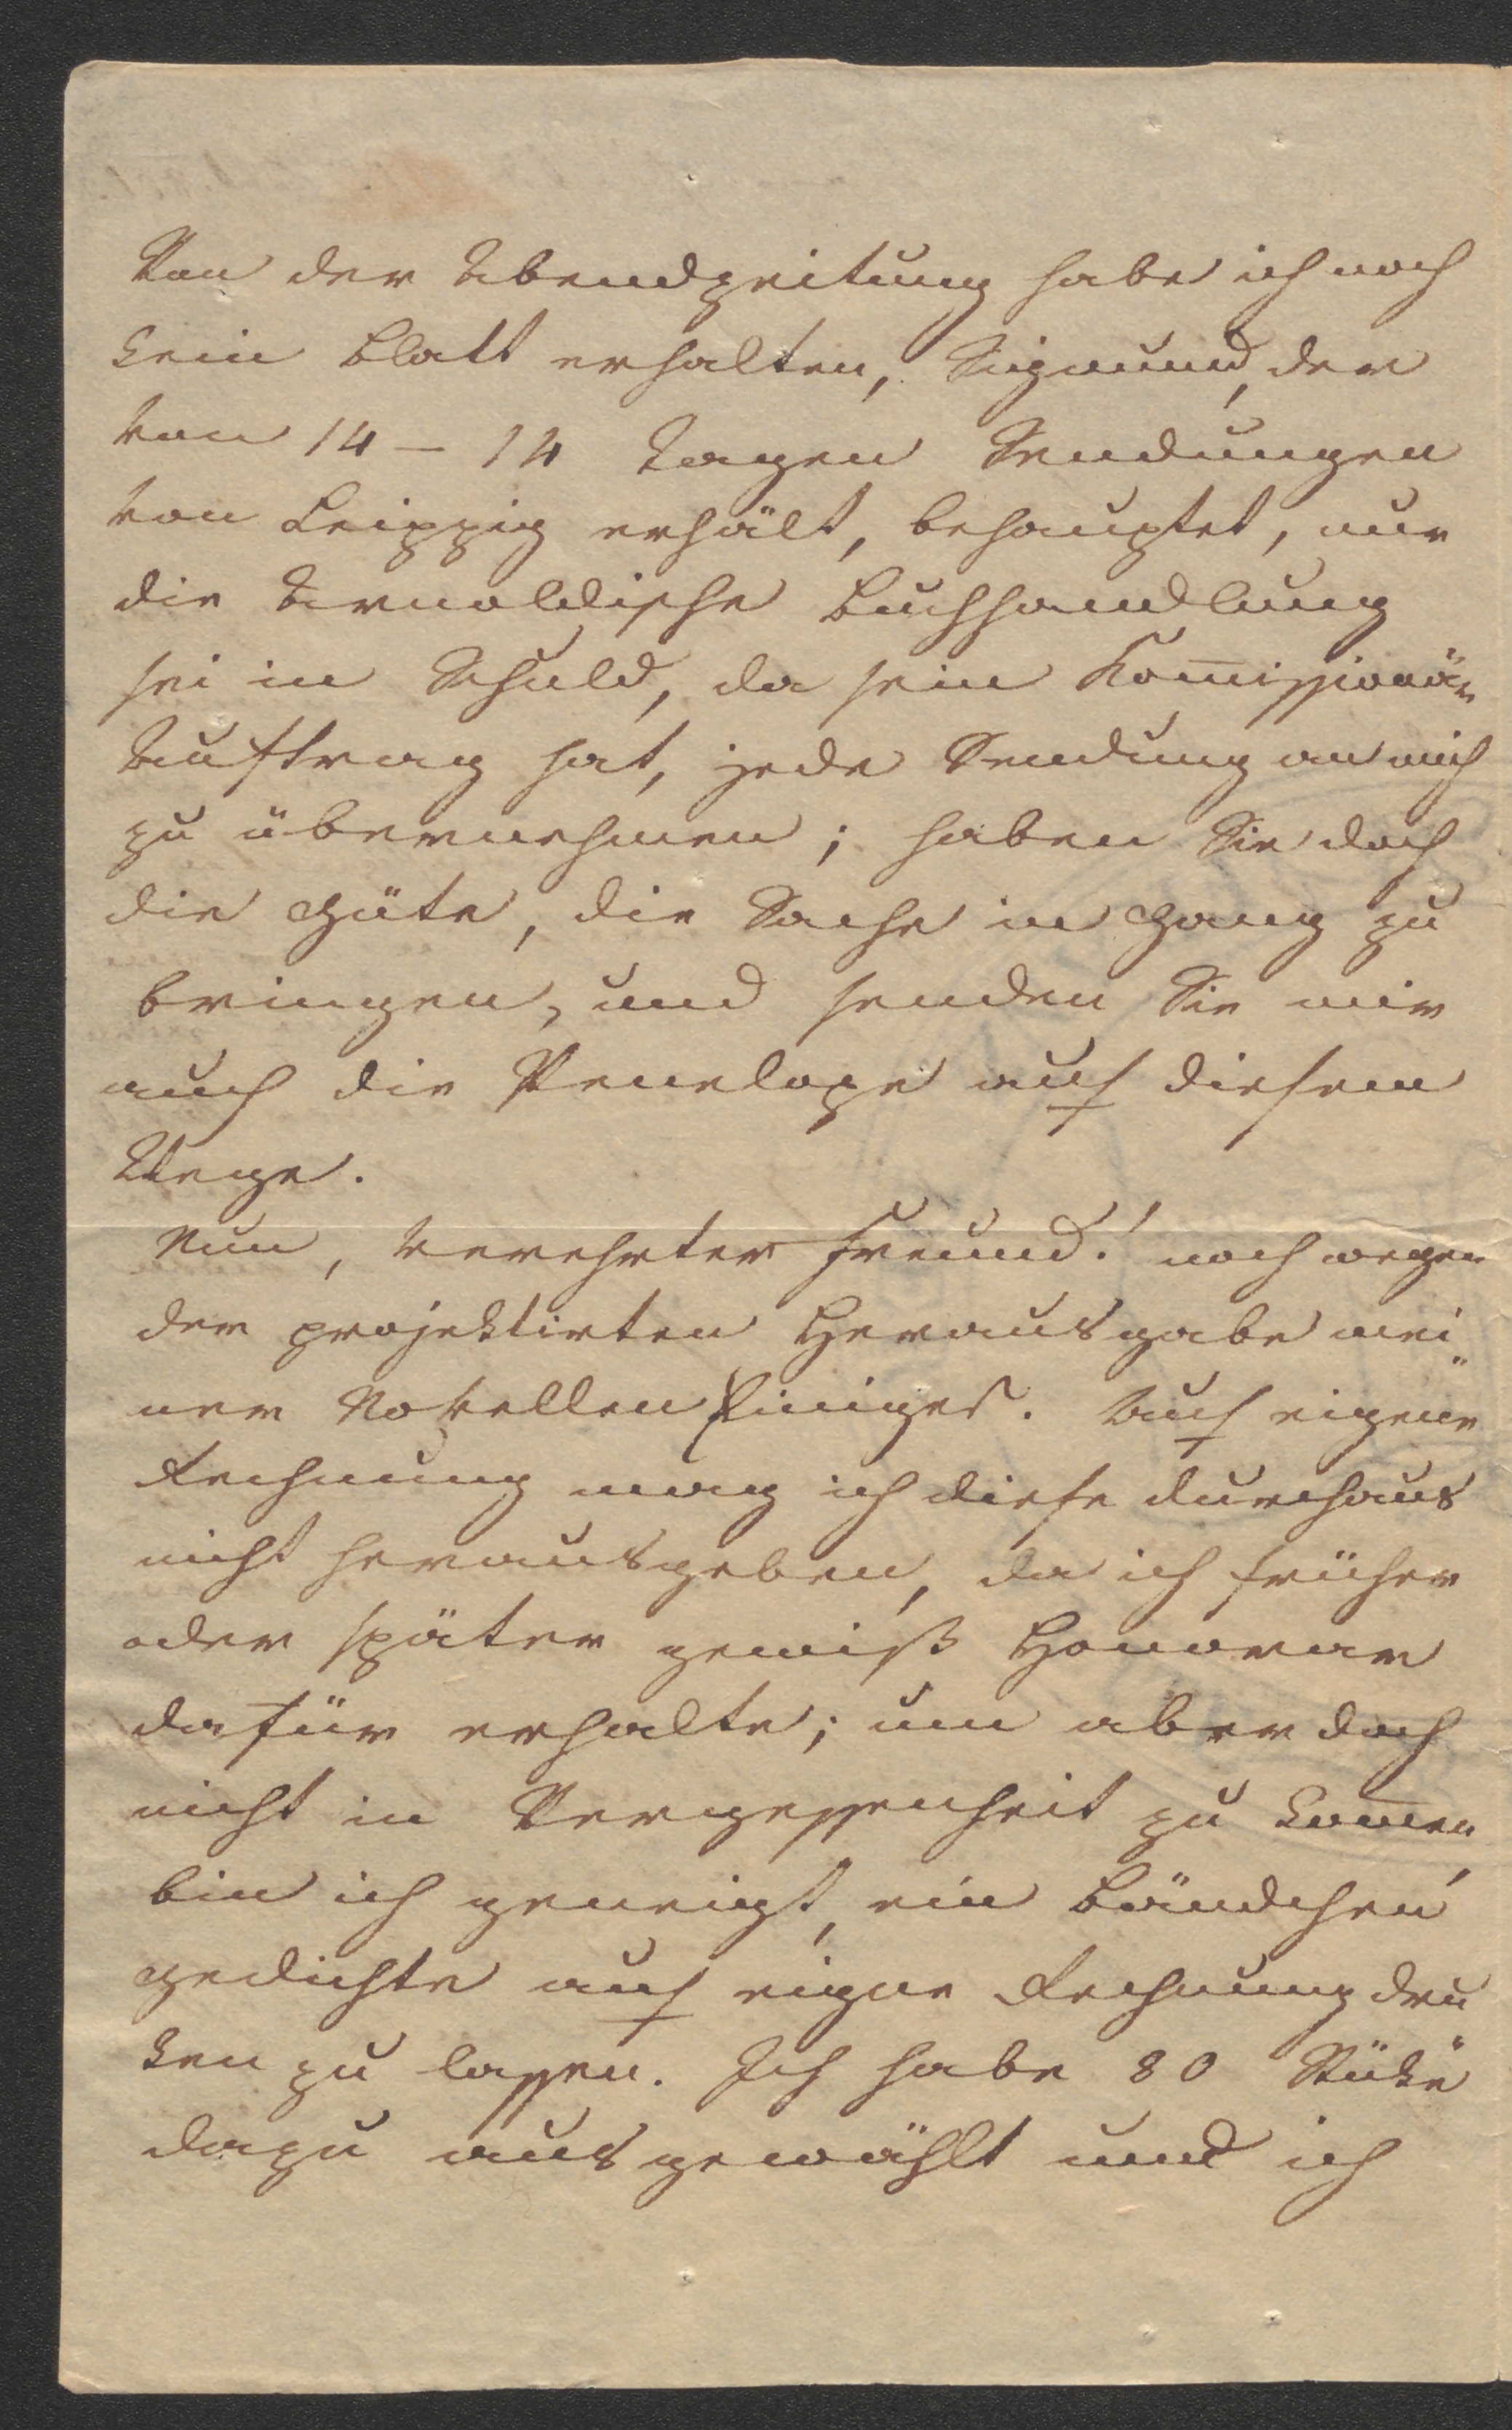 Von der Abendzeitung habe ich noch
kein Blatt erhalten, Sigmund, der
von 14 – 14 Tagen Sendungen
von Leipzig erhält, behauptet, nur
die Arnoldische Buchhandlung
sei in Schuld, da sein Kom̅issionär
Auftrag hat, jede Sendung an mich
zu übernehmen; haben Sie doch
die Güte, die Sache in Gang zu
bringen, und senden Sie mir
auch die Penelope auf diesem
Wege.
Nun, verehrter Freund! noch wegen
der projektirten Herausgabe mei„
ner Novellen Einiges. Auf eigene
Rechnung mag ich diese durchaus
nicht herausgeben, da ich früher
oder später gewiß Honorar
dafür erhalte; um aber doch
nicht in Vergessenheit zu kom̅en,
bin ich geneigt, ein Bändchen
Gedichte auf eigne Rechnung dru„
ken zu lassen. Ich habe 80 Stüke
dazu ausgewählt und ich